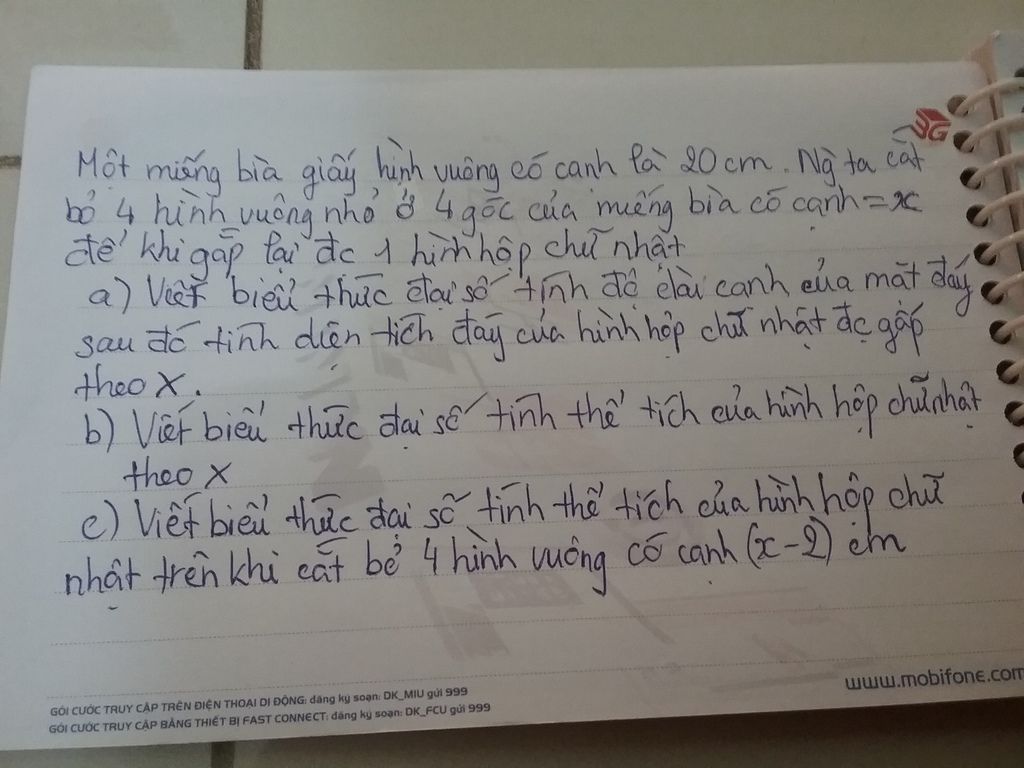 3G
Một miếng bìa giấy hình vuông có cạnh là 20 cm. Ng ta cắt
bỏ 4 hình vuông nhỏ ở 4 góc của miếng bìa có cạnh = x
để khi gấp lại đc 1 hình hộp chữ nhật
a) Viết biểu thức đại số tính độ dài cạnh của mặt đáy
sau đó tính diện tích đáy của hình hộp chữ nhật đc gấp
theo x.
b) Viết biểu thức đại số tính thể tích của hình hộp chữ nhật
theo x
c) Viết biểu thức đại số tính thể tích của hình hộp chữ
nhật trên khi cắt bỏ 4 hình vuông có cạnh (x-2) cm
www.mobifone.com
GÓI CƯỚC TRUY CẬP TRÊN ĐIỆN THOẠI DI ĐỘNG: đăng ký soạn: DK_MIU gửi 999
GÓI CƯỚC TRUY CẬP BẰNG THIẾT BỊ FAST CONNECT: đăng ký soạn: DK_FCU gửi 999